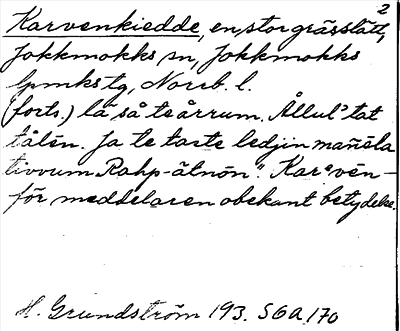 2
Karvenkiedde, en stor grässlätt,
Jokkmokks sn, Jokkmokks
lpmks tg, Norrb. l.
(forts.) lä så te årrum. Ållulˀ tat
tålēn. Ja te taste ledjin mañēla
tivvum Rahp-ätnōn". Karᵉvēn-
för meddelaren obekant betydelse.
H. Grundström 193. S6A 170